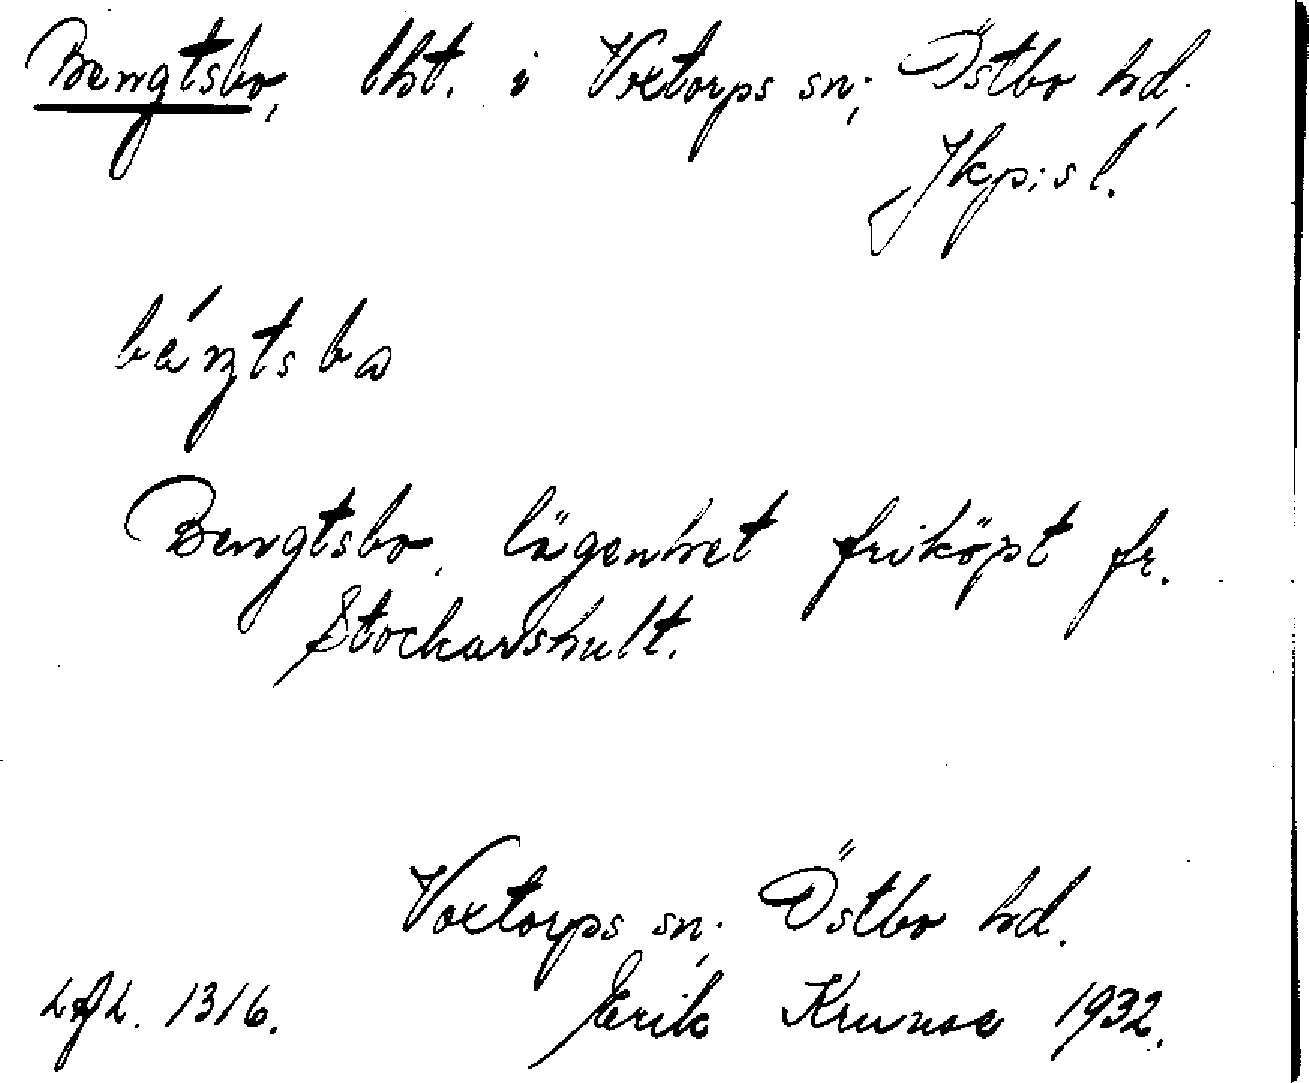 Bengtsbo, lht. i Voxtorps sn; Östbo hd;
Jkp:s l.
Bengtsbo, lägenhet friköpt fr.
Stockarshult.
Voxtorps sn; Östbo hd.
1316. Erik 1932.